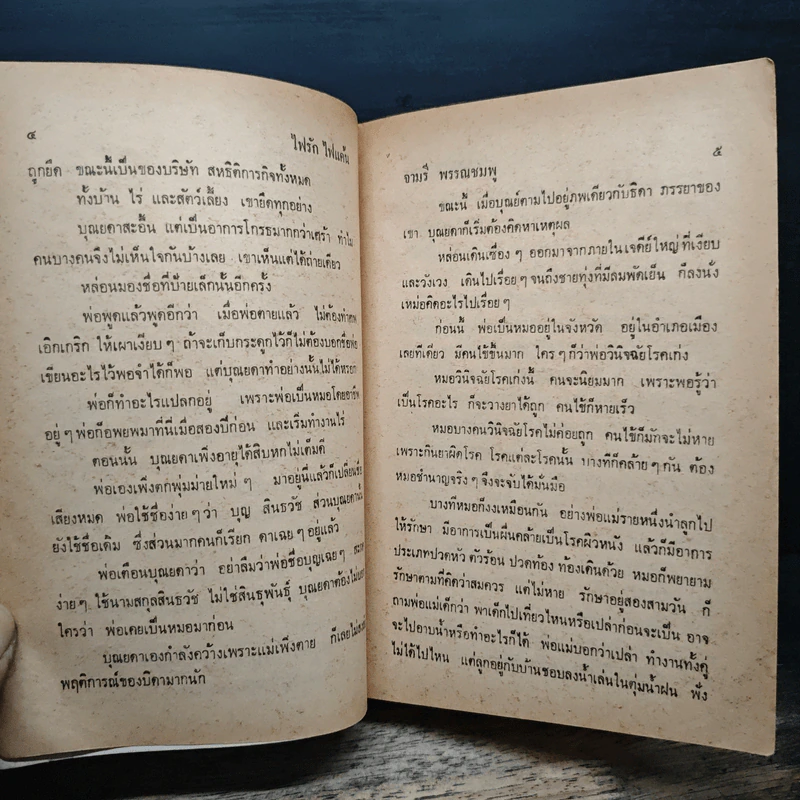 ๔
ไฟรัก ไฟแค้น
ถูกยึด ขณะนี้เป็นของบริษัท สหธิติการกิจทั้งหมด
ทั้งบ้าน ไร่ และสัตว์เลี้ยง เขายึดทุกอย่าง
บุณยดาสะอื้น แต่เป็นอาการโกรธมากกว่าเศร้า ทำไม
คนบางคนจึงไม่เห็นใจกันบ้างเลย เขาเห็นแต่ได้ถ่ายเดียว
หล่อนมองชื่อที่ป้ายเล็กนั้นอีกครั้ง
พ่อพูดแล้วพูดอีกว่า เมื่อพ่อตายแล้ว ไม่ต้องทำศพ
เอิกเกริก ให้เผาเงียบๆ ถ้าจะเก็บกระดูกไว้ก็ไม่ต้องบอกชื่อพ่อ
เขียนอะไรไว้พอจำได้ก็พอ แต่บุณยดาทำอย่างนั้นไม่ได้หรอก
พ่อก็ทำอะไรแปลกอยู่ เพราะพ่อเป็นหมอโดยอาชีพ
อยู่ๆพ่อก็อพยพมาที่นี่เมื่อสองปีก่อน และเริ่มทำงานไร่
ตอนนั้น บุณยดาเพิ่งอายุได้สิบหกไม่เต็มดี
พ่อเองเพิ่งตกพุ่มม่ายใหม่ๆ มาอยู่นี่แล้วก็เปลี่ยนชื่อ
เสียงหมด พ่อใช้ชื่อง่ายๆว่า บุญ สินธวัช ส่วนบุณยดานั้น
ยังใช้ชื่อเดิม ซึ่งส่วนมากคนก็เรียก ดาเฉยๆอยู่แล้ว
พ่อเตือนบุณยดาว่า อย่าลืมว่าพ่อชื่อบุญเฉยๆ
ง่ายๆ ใช้นามสกุลสินธวัช ไม่ใช่สินธุพันธุ์ บุณยดาต้องไม่บอก
ใครว่า พ่อเคยเป็นหมอมาก่อน
บุณยดาเองกำลังคว้างเพราะแม่เพิ่งตาย ก็เลยไม่สนใจ
พฤติการณ์ของบิดามากนัก
๕
จามรี พรรณชมพู
ขณะนี้ เมื่อบุณย์ตามไปอยู่ภพเดียวกับธิดา ภรรยาของ
เขา บุณยดาก็เริ่มต้องคิดหาเหตุผล
หล่อนเดินเซื่องๆ ออกมาจากภายในเจดีย์ใหญ่ที่เงียบ
และวังเวง เดินไปเรื่อยๆจนถึงชายทุ่งที่มีลมพัดเย็น ก็ลงนั่ง
เหม่อคิดอะไรไปเรื่อยๆ
ก่อนนี้ พ่อเป็นหมออยู่ในจังหวัด อยู่ในอำเภอเมือง
เลยทีเดียว มีคนไข้ขึ้นมาก ใครๆก็ว่าพ่อวินิจฉัยโรคเก่ง
หมอวินิจฉัยโรคเก่งนี้ คนจะนิยมมาก เพราะพอรู้ว่า
เป็นโรคอะไร ก็จะวางยาได้ถูก คนไข้ก็หายเร็ว
หมอบางคนวินิจฉัยโรคไม่ค่อยถูก คนไข้ก็มักจะไม่หาย
เพราะกินยาผิดโรค โรคแต่ละโรคนั้น บางทีก็คล้ายๆกัน ต้อง
หมอชำนาญจริงๆจึงจะจับได้มั่นมือ
บางทีหมอก็งงเหมือนกัน อย่างพ่อแม่รายหนึ่งนำลูกไป
ให้รักษา มีอาการเป็นผื่นคล้ายเป็นโรคผิวหนัง แล้วก็มีอาการ
ประเภทปวดหัว ตัวร้อน ปวดท้อง ท้องเดินด้วย หมอก็พยายาม
รักษาตามที่คิดว่าสมควร แต่ไม่หาย รักษาอยู่สองสามวัน ก็
ถามพ่อแม่เด็กว่า พาเด็กไปเที่ยวไหนหรือเปล่าก่อนจะเป็น อาจ
จะไปอาบน้ำหรือทำอะไรก็ได้ พ่อแม่บอกว่าเปล่า ทำงานทั้งคู่
ไม่ได้ไปไหน แต่ลูกอยู่กับบ้านชอบลงน้ำเล่นในตุ่มน้ำฝน ฟัง